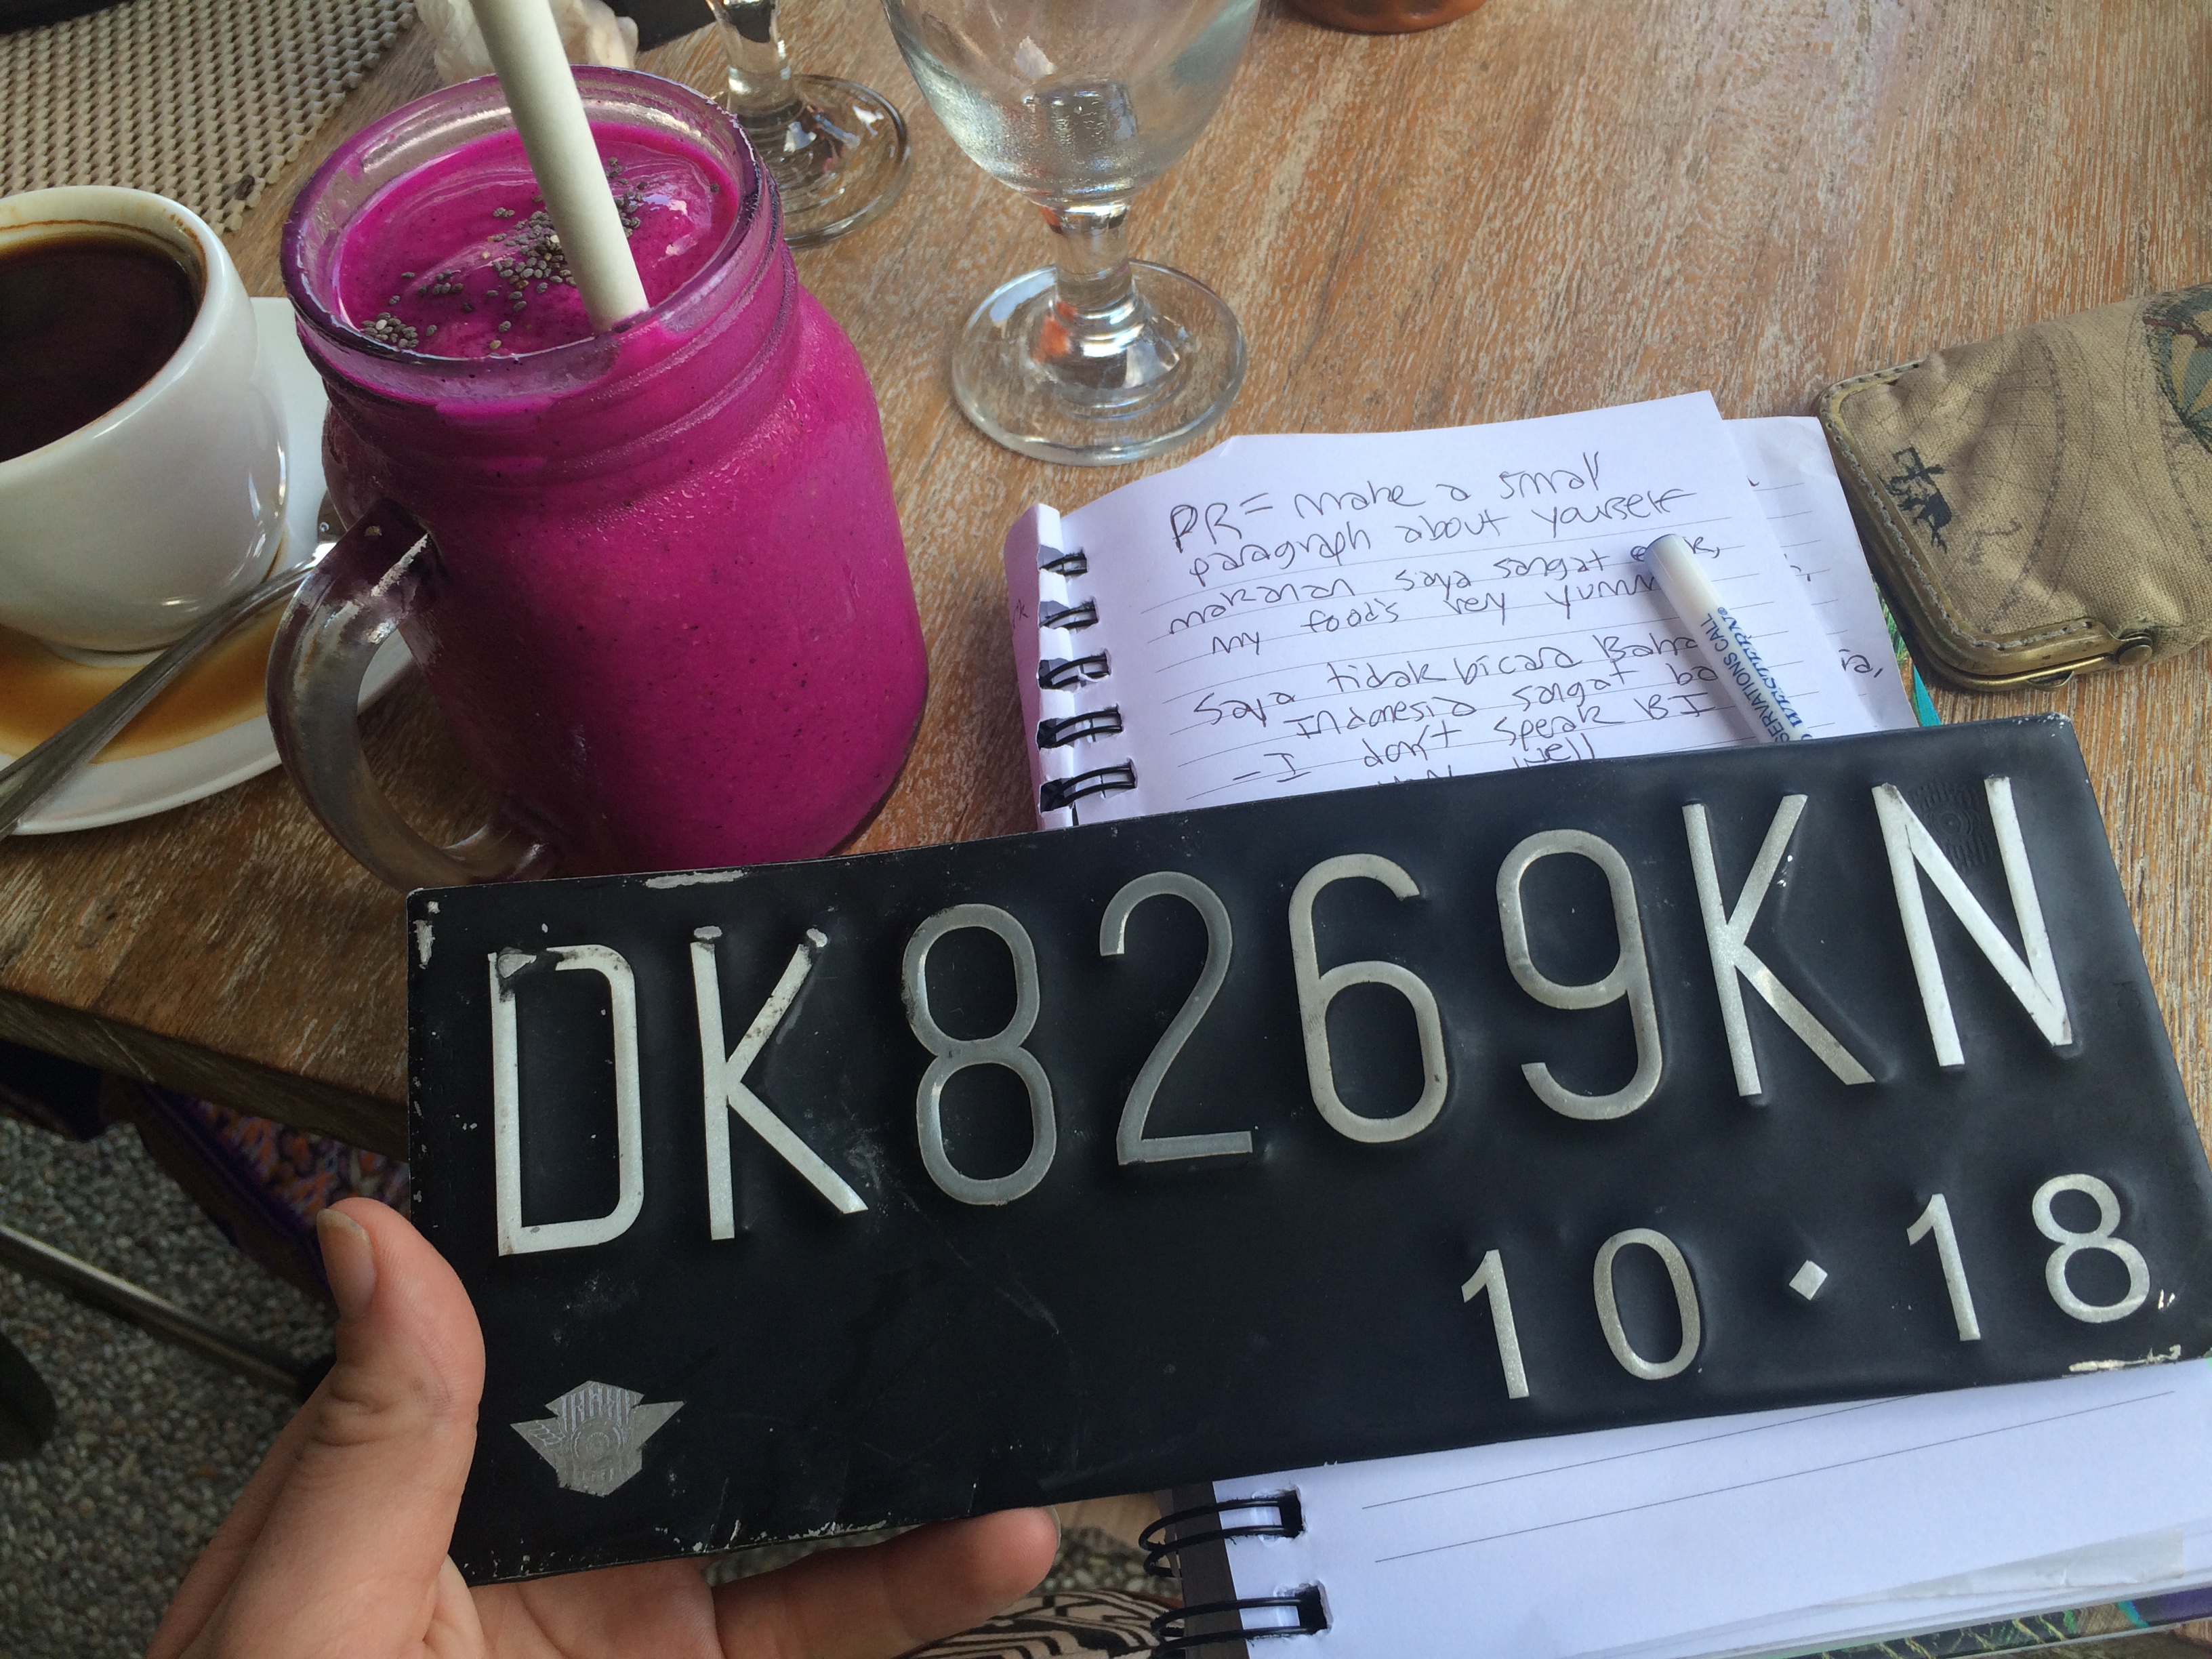 PR = make a small
paragraph about yourself
makanan saya sangat
my food's very
Saya tidak bicara
Indonesia sangat
- I don't speak BI
well
SERVATIONS CALL
DK 8269 KN
10 · 18